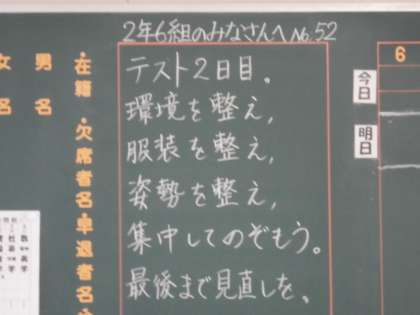 2年6組のみなさんへ No.52
テスト2日目。
環境を整え,
服装を整え,
姿勢を整え,
集中してのぞもう。
最後まで見直しを。
男 名
女 名
・在籍・欠席者名・早退者名・
6
今日
明日